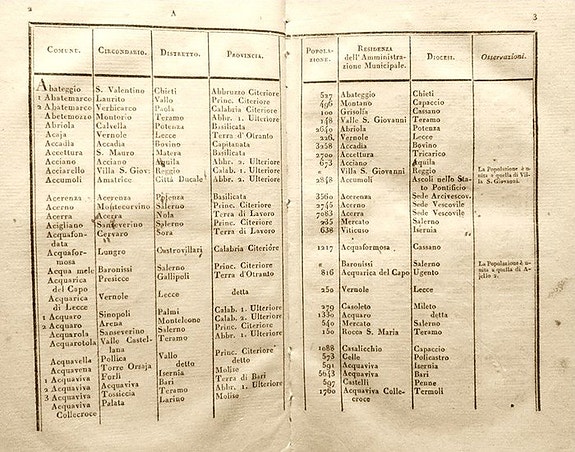 2 A
COMUNE. CIRCONDARIO. DISTRETTO. PROVINCIA.
Abateggio S. Valentino Chieti Abbruzzo Citeriore
1 Abatemarco Laurito Vallo Princ. Citeriore
2 Abatemarco Verbicaro Paola Calabria Citeriore
Abetemozzo Montorio Teramo Abbr. 1. Ulteriore
Abriola Calvella Potenza Basilicata
Acaja Vernole Lecce Terra d'Otranto
Accadia Accadia Bovino Capitanata
Accettura S. Mauro Matera Basilicata
Acciano Acciano Aquila Abbr. 2. Ulteriore
Acciarello Villa S. Giov: Reggio Calab. 1. Ulteriore
Accumoli Amatrice Città Ducale Abbr. 2. Ulteriore
Acerenza Acerenza Potenza Basilicata
Acerno Montecorvino Salerno Princ. Citeriore
Acerra Acerra Nola Terra di Lavoro
Acigliano Sanseverino Salerno Princ. Citeriore
Acquafon- Cervaro Sora Terra di Lavoro
data
Acquafor- Lungro Castrovillari Calabria Citeriore
mosa
Acqua mele Baronissi Salerno Princ. Citeriore
Acquarica Presicce Gallipoli Terra d'Otranto
del Capo
Acquarica Vernole Lecce detta
di Lecce
1 Acquaro Sinopoli Palmi Calab. 1. Ulteriore
2 Acquaro Arena Monteleone Calab. 1. Ulteriore
Acquarola Sanseverino Salerno Princ. Citeriore
Acquarotola Valle Castel- Teramo Abbr. 1. Ulteriore
lana
Acquavella Pollica Vallo Princ. Citeriore
Acquavena Torre Orsaja detto detto
1 Acquaviva Forlì Isernia Molise
2 Acquaviva Acquaviva Bari Terra di Bari
3 Acquaviva Tossiccia Teramo Abbr. 1. Ulteriore
Acquaviva Palata Larino Molise
Collecroce
3
POPOLA- RESIDENZA DIOCESI. Osservazioni.
ZIONE. dell'Amministra-
zione Municipale.
527 Abateggio Chieti
496 Montano Capaccio
100 Grisolia Cassano
148 Valle S. Giovanni Teramo
2640 Abriola Potenza
226 Vernole Lecce
3258 Accadia Bovino
2700 Accettura Tricarico
673 Acciano Aquila
" Villa S. Giovanni Reggio La Popolazione è u-
nita a quella di Vil-
la S. Giovanni.
2848 Accumoli Ascoli nello Sta-
to Pontificio
3560 Acerenza Sede Arcivescov.
2745 Acerno Sede Vescovile
7083 Acerra Sede Vescovile
235 Mercato Salerno
638 Viticuso Isernia
1217 Acquaformosa Cassano
" Baronissi Salerno La Popolazione è u-
nita a quella di A-
jello 2.
816 Acquarica del Capo Ugento
250 Vernole Lecce
279 Casoleto Mileto
1330 Acquaro detta
540 Mercato Salerno
150 Rocca S. Maria Teramo
1088 Casalicchio Capaccio
573 Celle Policastro
591 Acquaviva Isernia
5643 Acquaviva Bari
597 Castelli Penne
1760 Acquaviva Colle- Termoli
croce